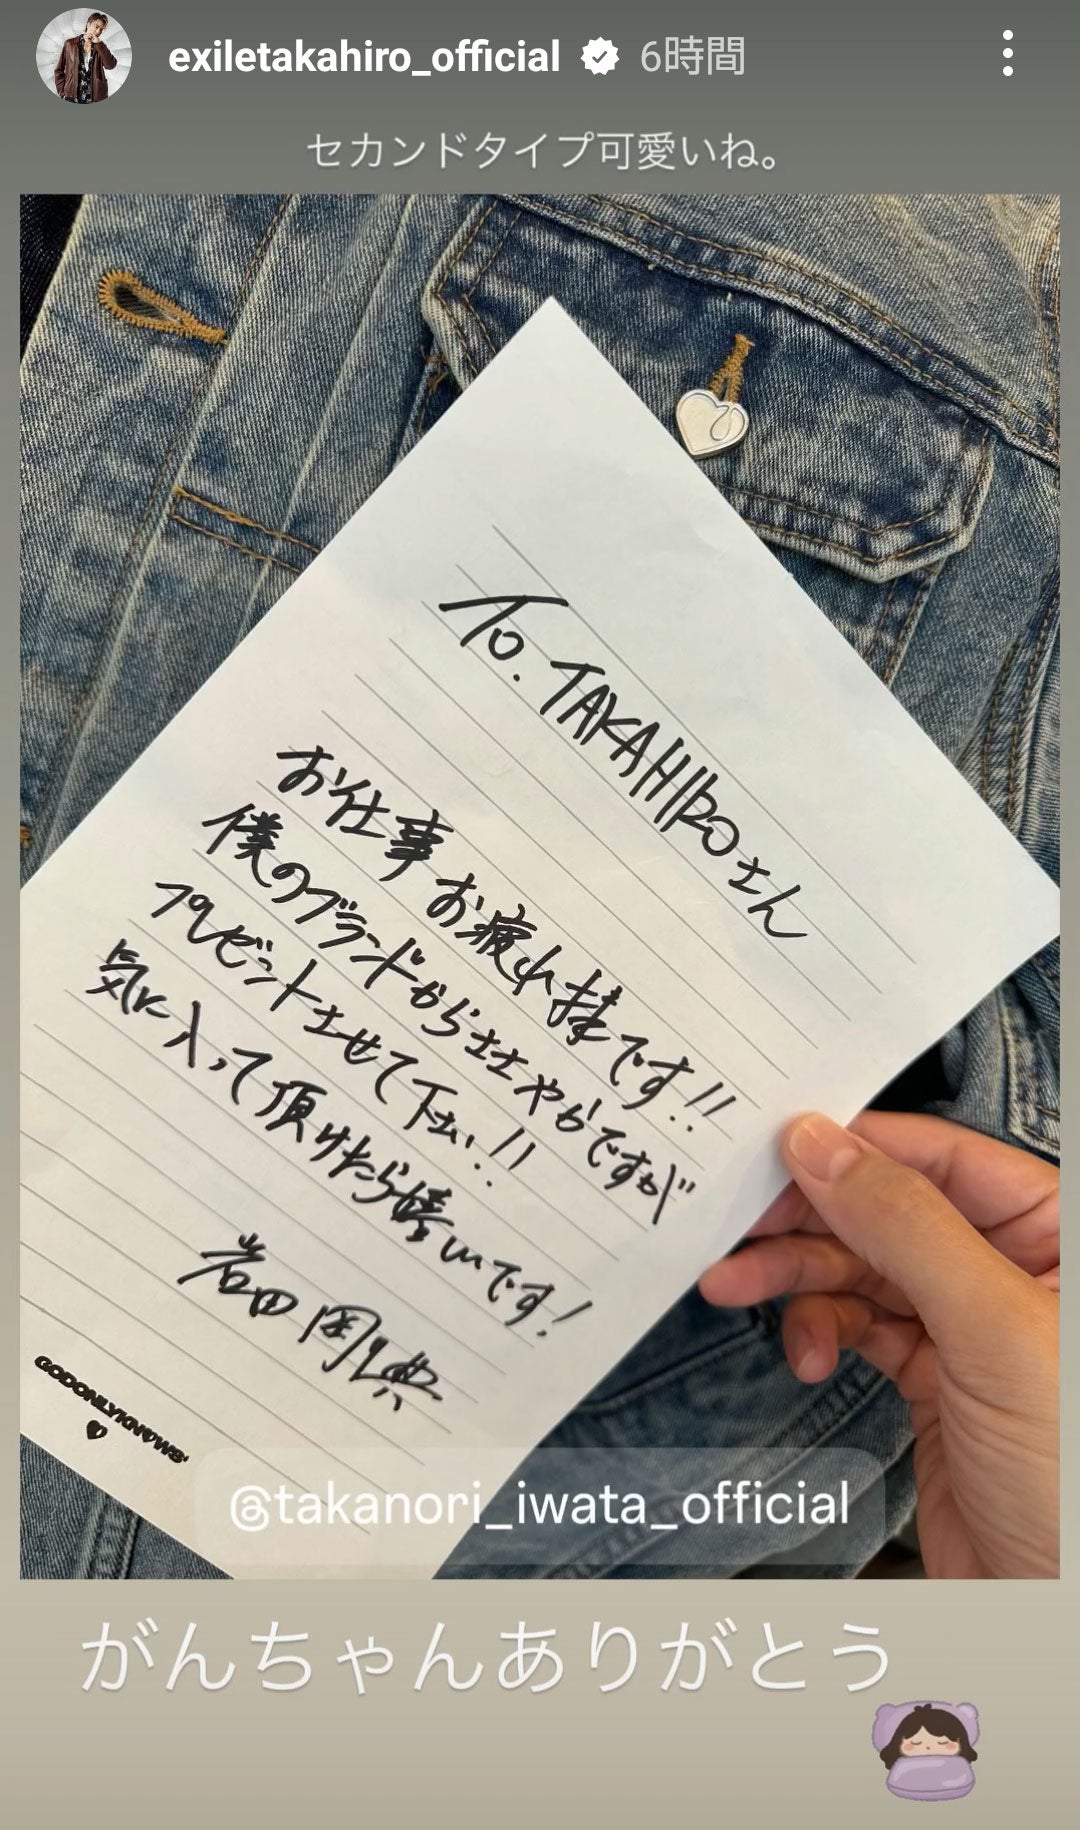 exiletakahiro_official 6時間
セカンドタイプ可愛いね。
To. TAKAHIROさん
お仕事お疲れ様です!!
僕のブランドからささやかですが
プレゼントさせて下さい!!
気に入って頂けたら嬉しいです!
岩田剛典
GODONLYKNOWS
@takanori_iwata_official
がんちゃんありがとう